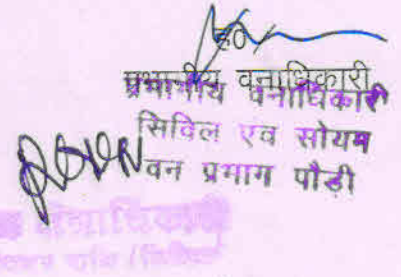 ह0/
प्रभागीय वनाधिकारी
प्रभागीय वनाधिकारी
सिविल एव सोयम
वन प्रभाग पौड़ी